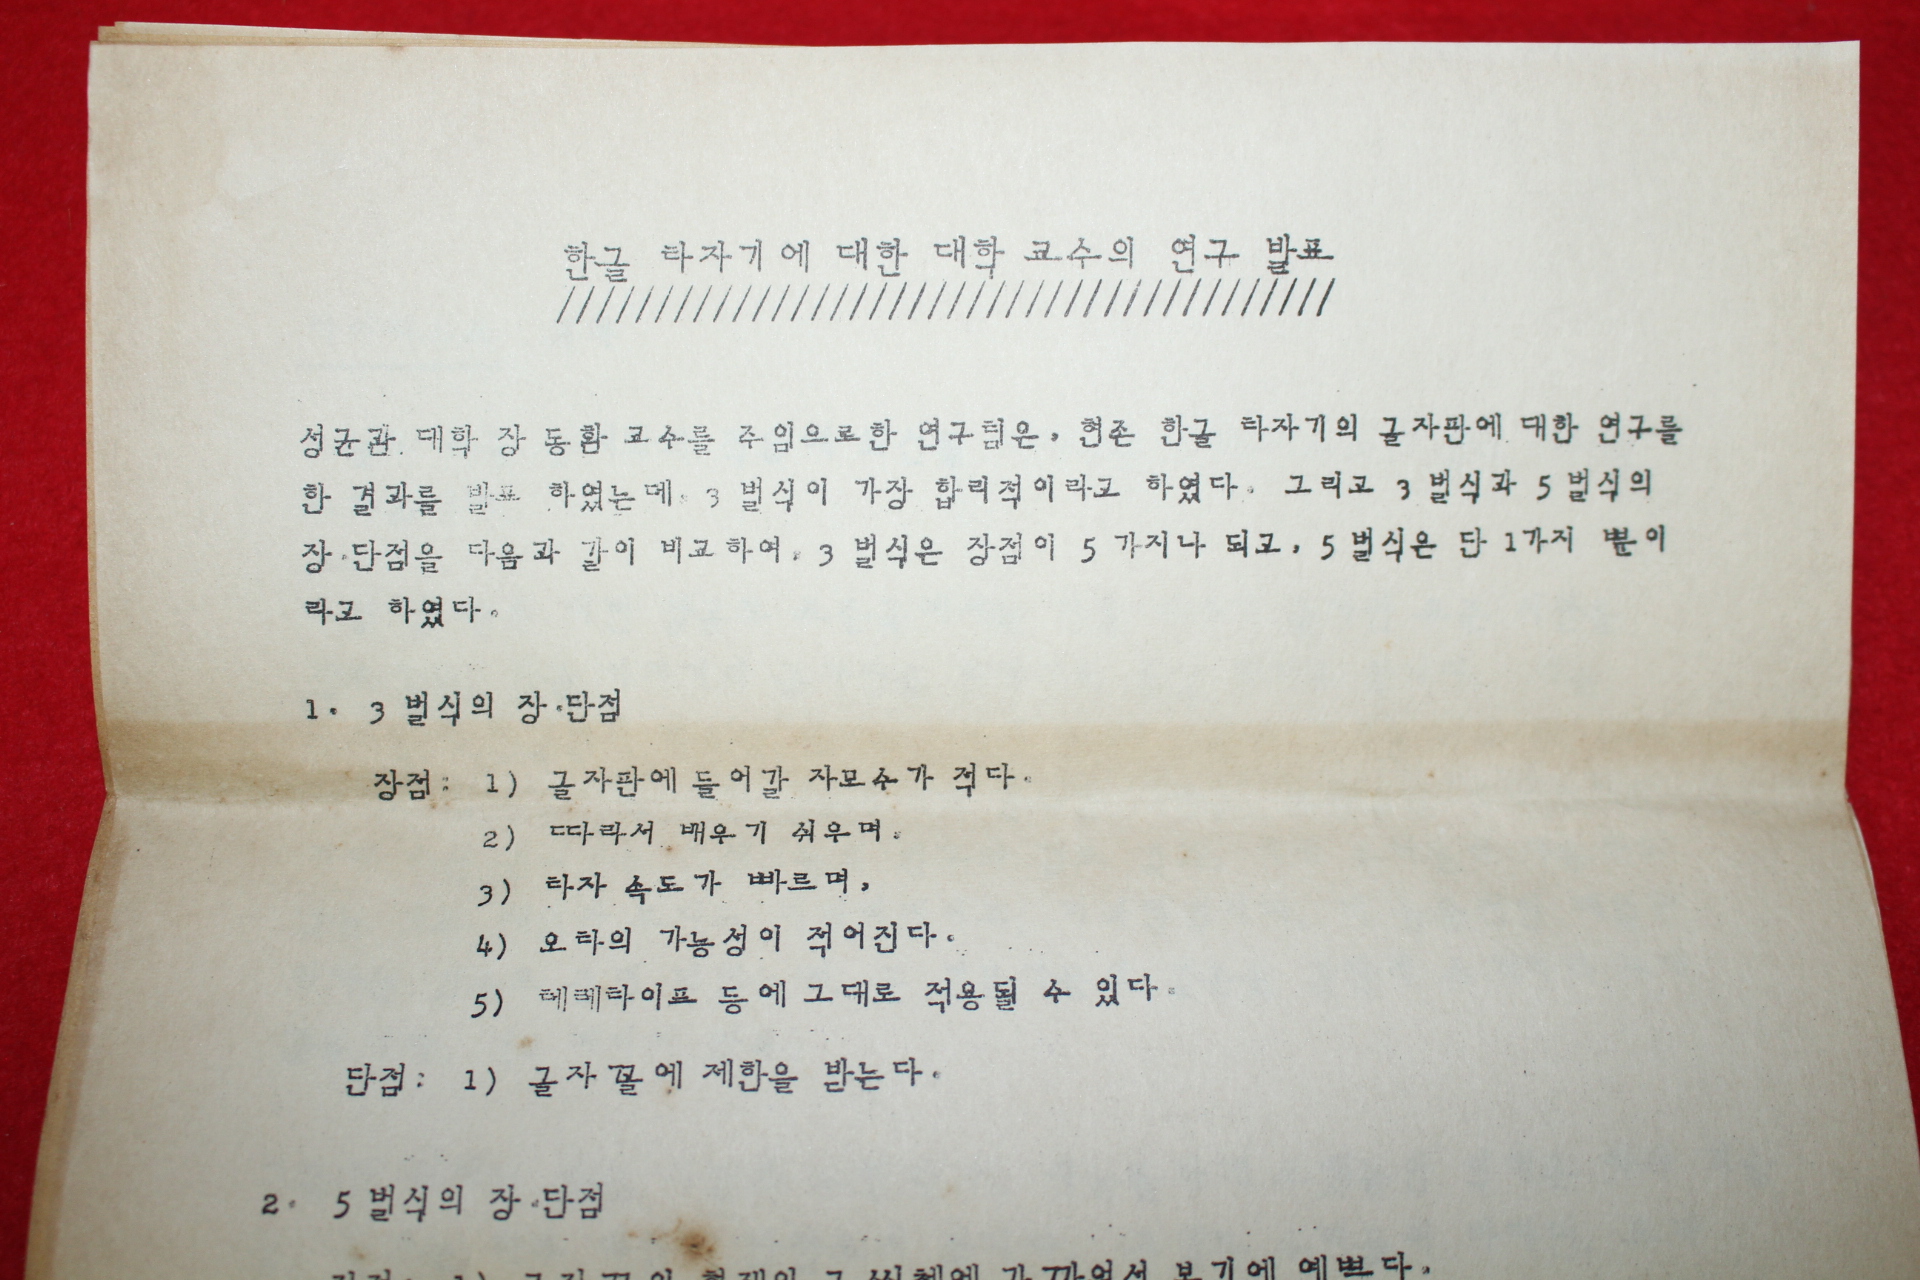 한글 타자기에 대한 대학 교수의 연구 발표
////////////////////////////////////////
성균관 대학 장 동환 교수를 주임으로한 연구팀은, 현존 한글 타자기의 글자판에 대한 연구를
한 결과를 발표 하였는데. 3 벌식이 가장 합리적이라고 하였다. 그리고 3 벌식과 5 벌식의
장.단점을 다음과 같이 비교하여. 3 벌식은 장점이 5 가지나 되고, 5 벌식은 단 1가지 뿐이
라고 하였다.
1. 3 벌식의 장.단점
장점: 1) 글자판에 들어갈 자모수가 적다.
2) 따라서 배우기 쉬우며.
3) 타자 속도가 빠르며,
4) 오타의 가능성이 적어진다.
5) 테레타이프 등에 그대로 적용될 수 있다.
단점: 1) 글자 꼴에 제한을 받는다.
2. 5 벌식의 장.단점
장점: 1) 글자 꼴이 현재의 글씨체에 가까워서 보기에 예쁘다.